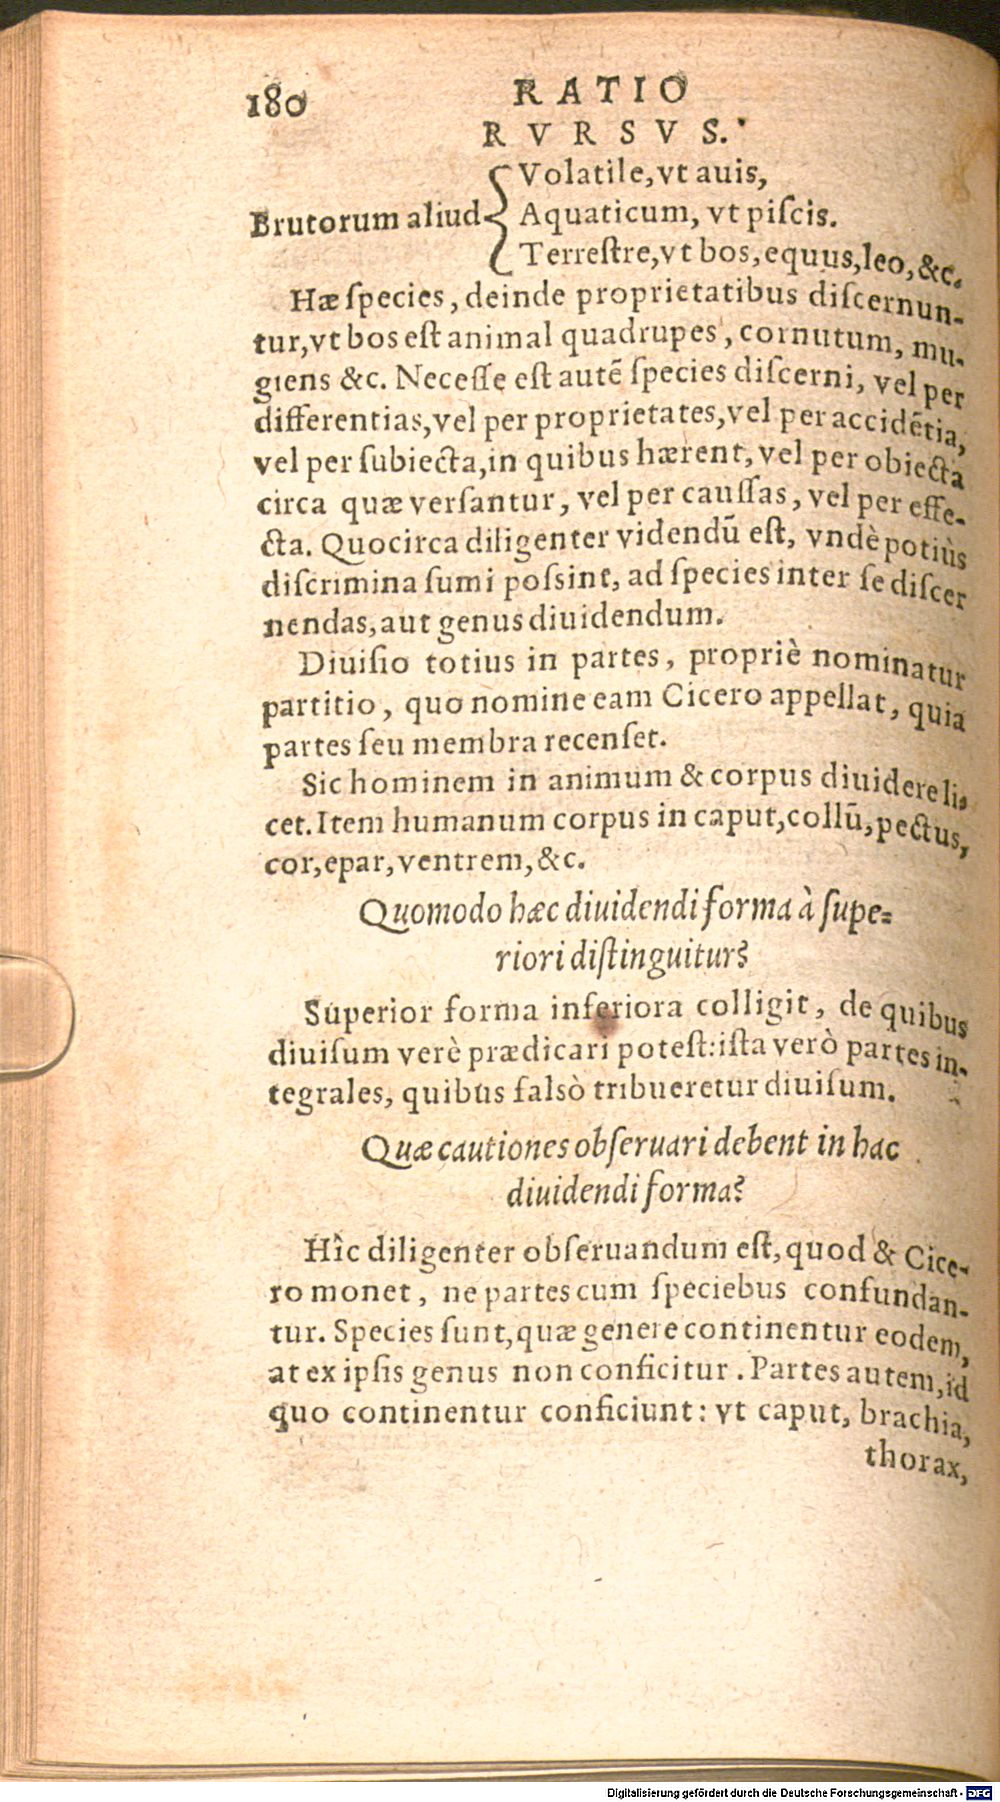 180 RATIO
RVRSVS.
Brutorum aliud { Volatile, vt auis,
Aquaticum, vt piſcis.
Terreſtre, vt bos, equus, leo, &c.
Hæ ſpecies, deinde proprietatibus diſcernun-
tur, vt bos eſt animal quadrupes, cornutum, mu-
giens &c. Neceſſe eſt autē ſpecies diſcerni, vel per
differentias, vel per proprietates, vel per accidētia,
vel per ſubiecta, in quibus hærent, vel per obiecta
circa quæ verſantur, vel per cauſſas, vel per effe-
cta. Quocirca diligenter videndū eſt, vndè potiùs
diſcrimina ſumi poſsint, ad ſpecies inter ſe diſcer
nendas, aut genus diuidendum.
Diuiſio totius in partes, propriè nominatur
partitio, quo nomine eam Cicero appellat, quia
partes ſeu membra recenſet.
Sic hominem in animum & corpus diuidere li-
cet. Item humanum corpus in caput, collū, pectus,
cor, epar, ventrem, &c.
Quomodo hæc diuidendi forma à ſupe-
riori diſtinguitur?
Superior forma inferiora colligit, de quibus
diuiſum verè prædicari poteſt: iſta verò partes in-
tegrales, quibus falsò tribueretur diuiſum.
Quæ cautiones obſeruari debent in hac
diuidendi forma?
Hîc diligenter obſeruandum eſt, quod & Cice-
ro monet, ne partes cum ſpeciebus confundan-
tur. Species ſunt, quæ genere continentur eodem,
at ex ipſis genus non conficitur. Partes autem, id
quo continentur conficiunt: vt caput, brachia,
thorax,
Digitalisierung gefördert durch die Deutsche Forschungsgemeinschaft - DFG